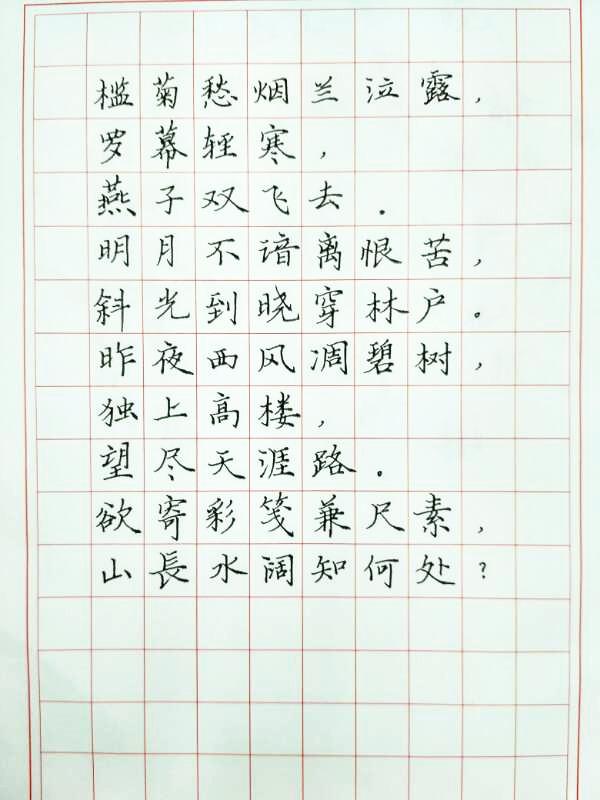 槛菊愁烟兰泣露，
罗幕轻寒，
燕子双飞去.
明月不谙离恨苦，
斜光到晓穿林户。
昨夜西风凋碧树，
独上高楼，
望尽天涯路。
欲寄彩笺兼尺素，
山長水阔知何处？